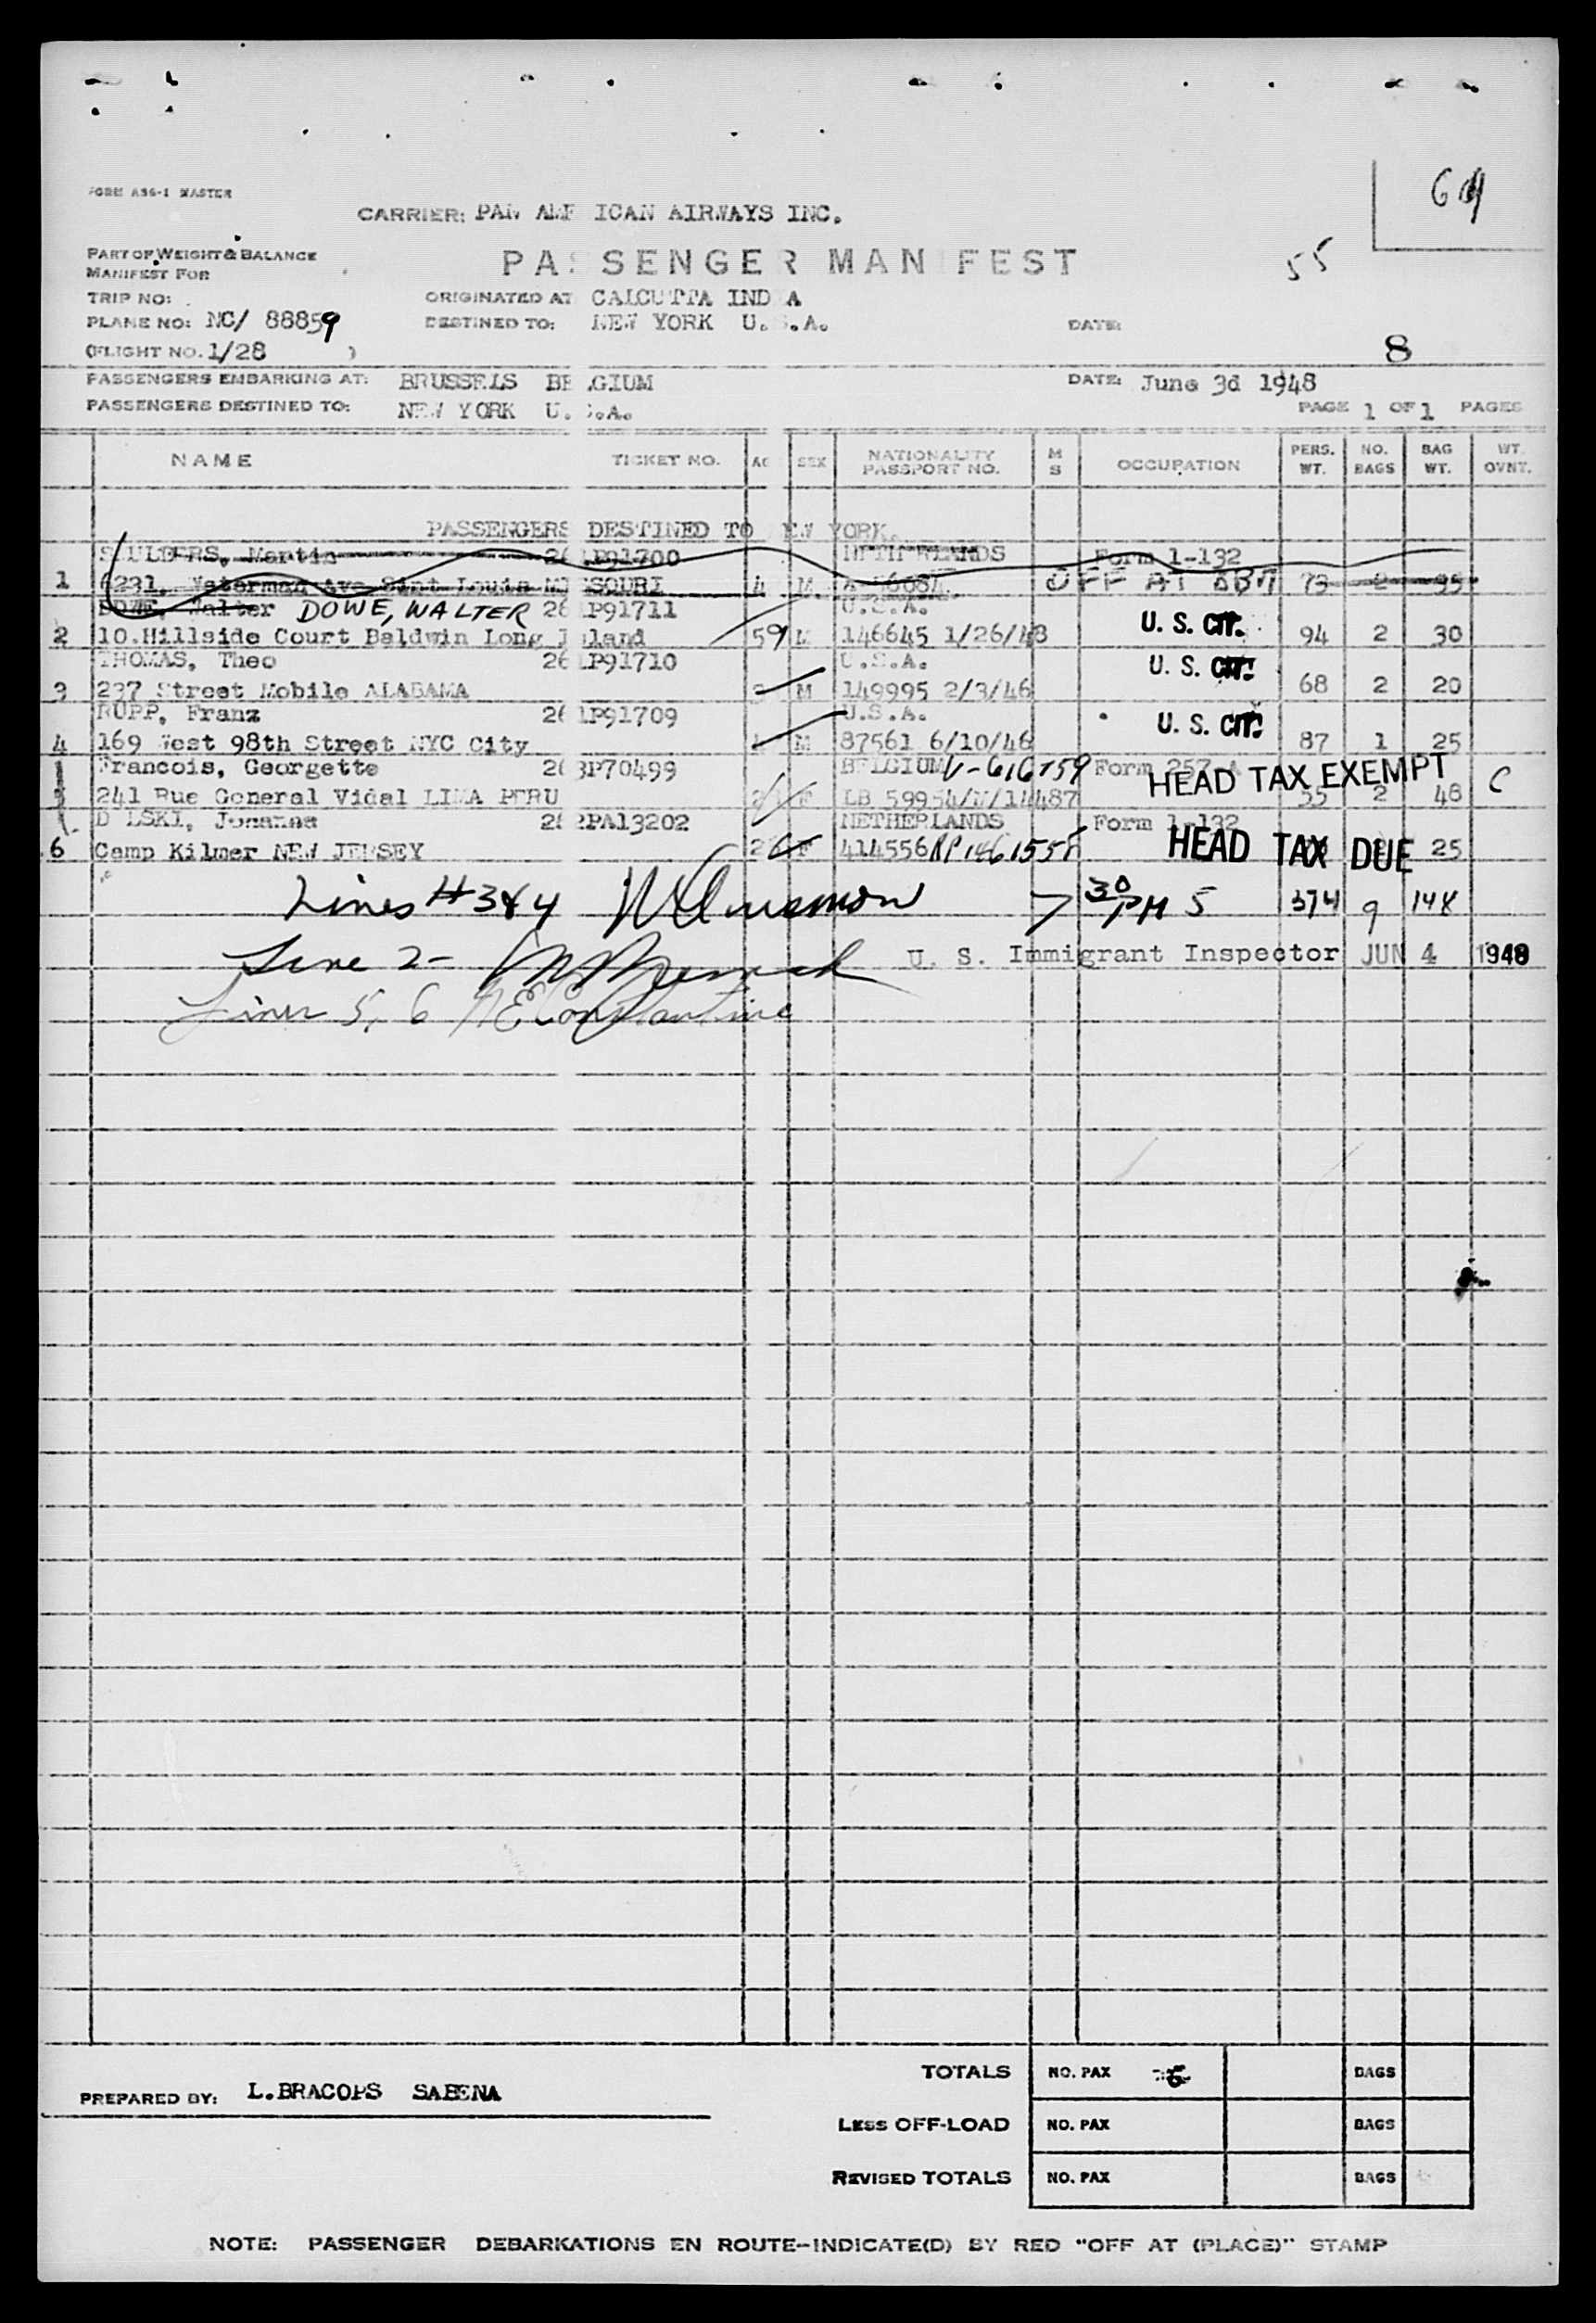 FORM A36-1 MASTER
64
CARRIER: PAN AMERICAN AIRWAYS INC.
PART OF WEIGHT & BALANCE
MANIFEST FOR
PASSENGER MANIFEST
55
TRIP NO:
ORIGINATED AT CALCUTTA INDIA
PLANE NO: NC/ 88859
DESTINED TO: NEW YORK U.S.A.
DATE:
(FLIGHT NO. 1/28 )
8
PASSENGERS EMBARKING AT: BRUSSELS BELGIUM
DATE: June 3d 1948
PASSENGERS DESTINED TO: NEW YORK U.S.A.
PAGE 1 OF 1 PAGES
NAME TICKET NO. AGE SEX NATIONALITY PASSPORT NO. M S OCCUPATION PERS. WT. NO. BAGS BAG WT. WT. OVNT.
PASSENGERS DESTINED TO NEW YORK.
Martin 261P91700 NETHERLANDS Form 1-132
1 6231, Waterman Ave Saint Louis MISSOURI 4 M OFF AT 73 2 95
DOWE, Walter DOWE, WALTER 261P91711 U.S.A.
2 10.Hillside Court Baldwin Long Island 59 M 146645 1/26/48 U. S. CIT. 94 2 30
THOMAS, Theo 261P91710 U.S.A. U. S. CIT.
3 237 Street Mobile ALABAMA M 149995 2/3/46 68 2 20
RUPP, Franz 261P91709 U.S.A. U. S. CIT.
4 169 West 98th Street NYC City M 87561 6/10/46 87 1 25
Francois, Georgette 263P70499 BELGIUM V-616759 Form 257 HEAD TAX EXEMPT
5 241 Rue General Vidal LIMA PERU F LB 59954/M/14487 55 2 48 C
282PA13202 NETHERLANDS Form 1-132
6 Camp Kilmer NEW JERSEY 26 F 414556 RP 1461558 HEAD TAX DUE 25
Lines # 3 & 4 7 30 PM 5 374 9 148
U. S. Immigrant Inspector JUN 4 1948
Line 2-
Lines 5, 6 Constantine
PREPARED BY: L.BRACOPS SABENA
TOTALS NO. PAX BAGS
LESS OFF-LOAD NO. PAX BAGS
REVISED TOTALS NO. PAX BAGS
NOTE: PASSENGER DEBARKATIONS EN ROUTE-INDICATE(D) BY RED "OFF AT (PLACE)" STAMP